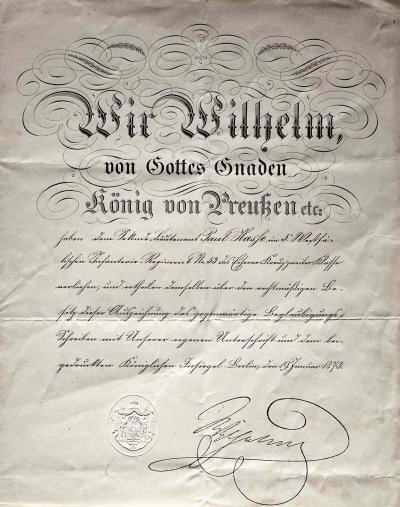 Wir Wilhelm,
von Gottes Gnaden
König von Preußen etc:
haben dem Sekond Lieutenant Paul Hasse im 5. Westfä-
lischen Infanterie Regiment No 53 das Eiserne Kreuz zweiter Klasse
verliehen, und ertheilen demselben über den rechtmäßigen Be-
sitz dieser Auszeichnung das gegenwärtige Beglaubigungs-
Schreiben mit Unserer eigenen Unterschrift und dem bei-
gedruckten Königlichen Insiegel Berlin, den Januar 1873.
Wilhelm